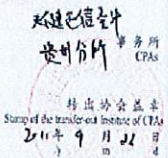 天健正信会计
贵州分所 事务所
CPAs
转出协会盖章
Stamp of the transfer-out Institute of CPAs
2011年9月22日
y m d